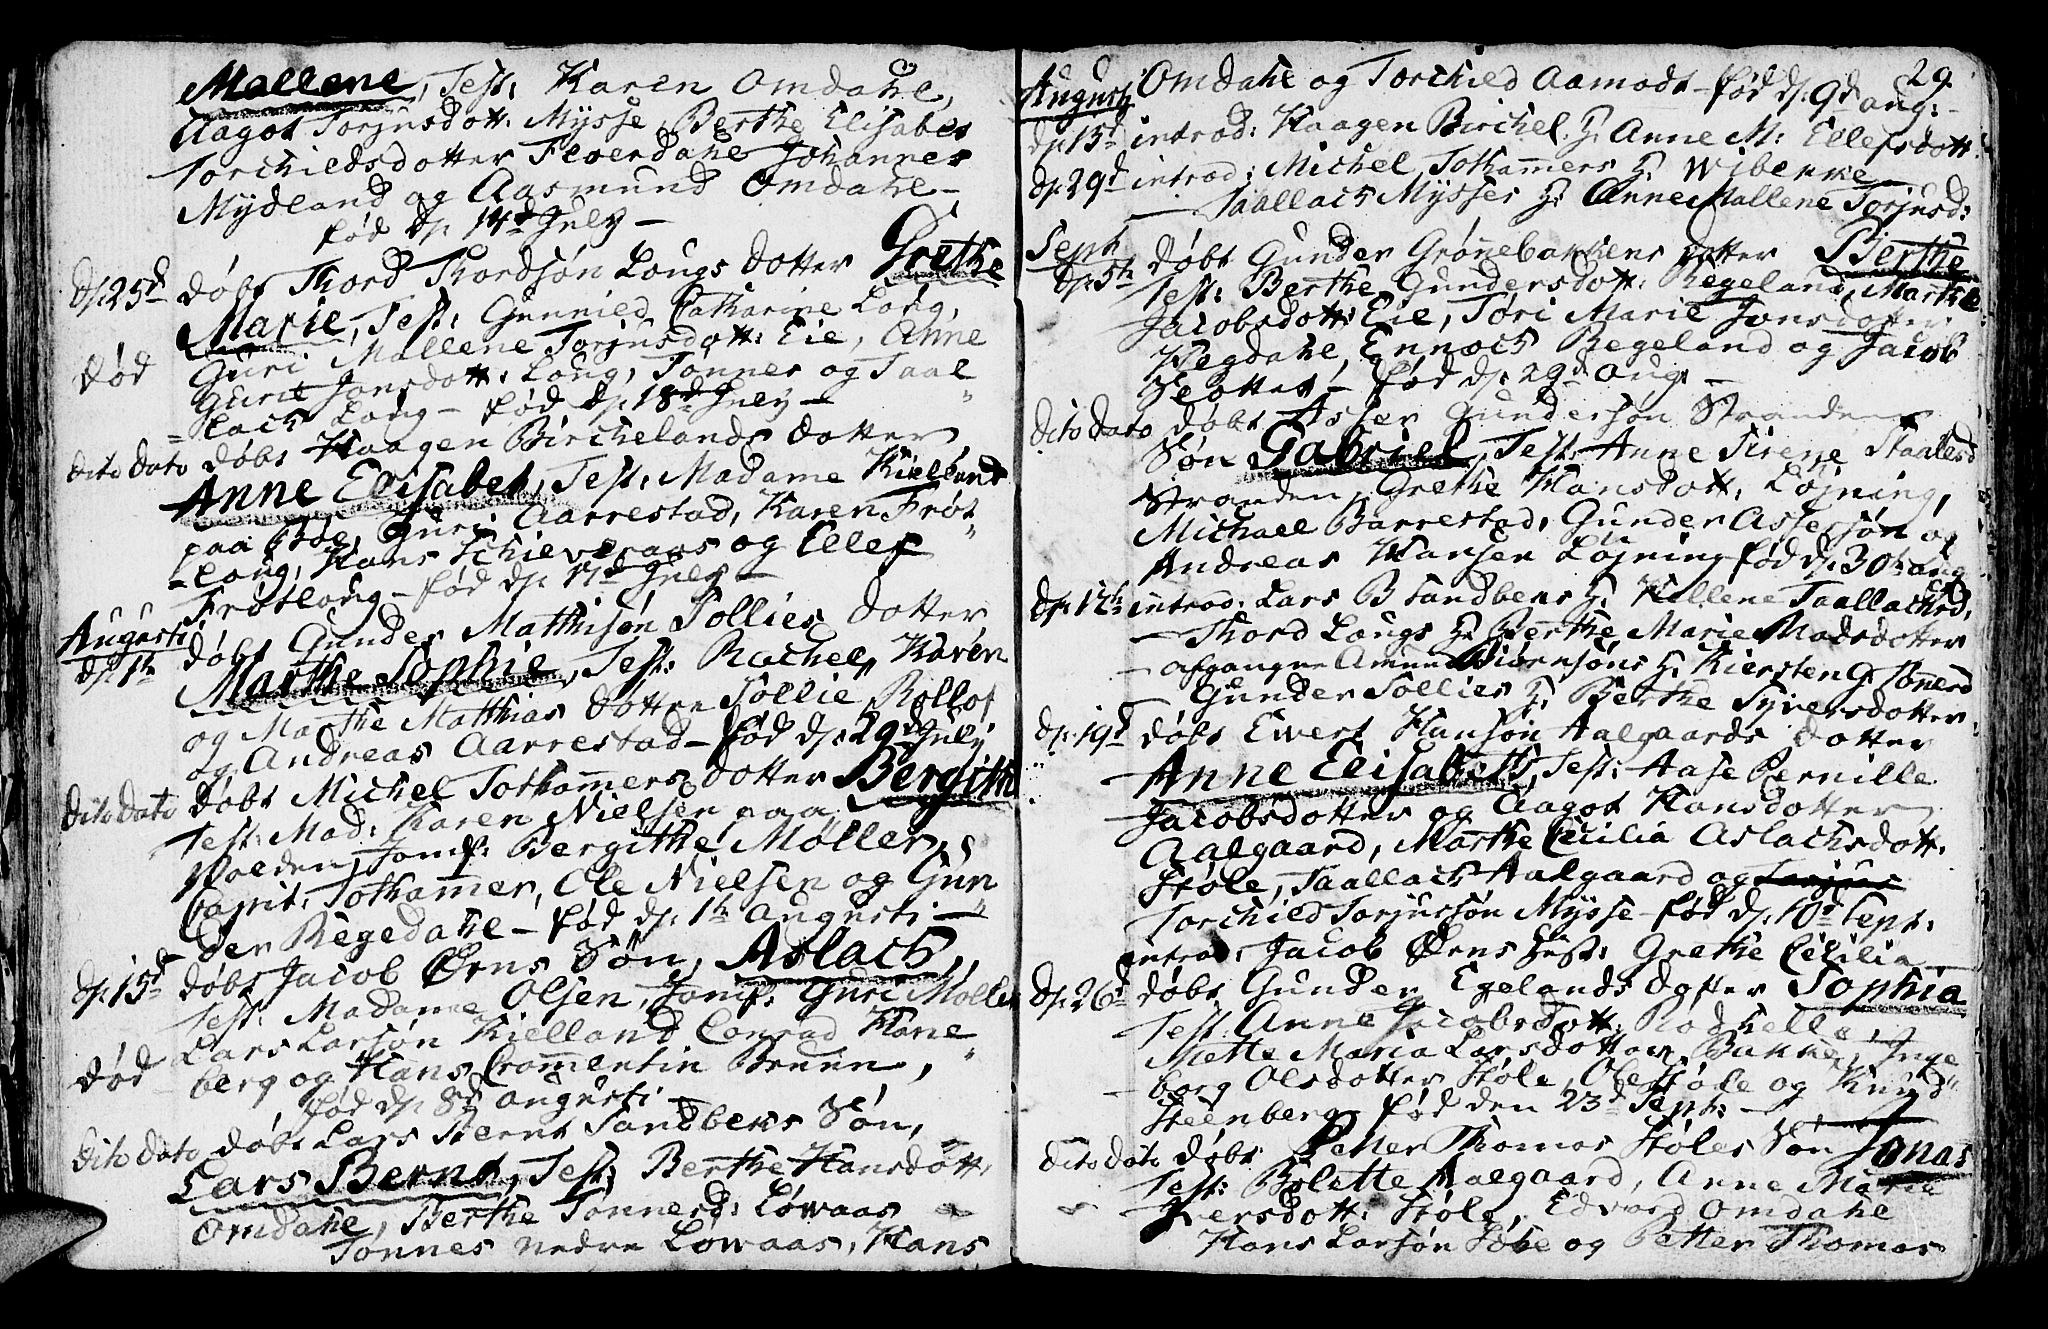 Mallene, Test: Karen Omdahl,
Aagot Torjusdott: Mysse, Berthe Elisabet
Torchieldsdotter Fleerdahl Johannes
Mydland og Aasmund Omdahl –
fød d. 14d July –
d. 25d døbt Thord Thordsøn Lougs dotter Grethe
Marie, Test: Gunnild Catharine Loug,
død Guri Mallene Torjusdott: Eie, Anne
Gurie Jonsdott: Loug, Tønnes og Taal
lach Loug – fød d. 18d July –
dito dato døbt Haagen Birchelands dotter
Anne Elisabet, Test: Madame Kielland
paa Eide, Guri Aarrestad, Karen Frøt
loug, Hans og Ellef
Frøtloug – fød d. 17d July –
Augusti
d. 1te døbt Gunder Mathisøn Sollies dotter
Marthe Sophie, Test: Rachel, Karen
og Marthe Matthias døttre Sollie, Rollof
og Andreas Aarrestad – fød d. 29d July
dito dato døbt Michel Tothamers dotter Bergith
Test: Mad: Karen Nielsen paa
Volden, Jomf: Bergithe Møller,
Capit: Tothamer, Ole Nielsen og Gun
der Regedahl – fød d. 1te Augusti –
d. 15d døbt Jacob Ørns Søn, Aslach,
Test: Madame Olsen, Jomf: Guri Møller
Lars Larsøn Kielland Conrad Hane
død berg og Hans Cromentin Bruun,
fød d. 8d Augusti –
dito dato døbt Lars Bernt Sandbeks Søn,
Lars Bernt, Test: Berthe Hansdott:
Omdahl, Berthe Tønnesd: Løwaas
Tønnes nedre Løwaas, Hans
29
Augusti Omdahl og Torchild Aamodt – fød d. 9d aug: –
d. 15d introd: Haagen Birchel. H. Anne M: Ellefsdott:
d. 29d introd: Michel Tothamers H. Wibekke
– Taallach Mysses H. Anne Mallene Torjusd:
Sept
d. 5te døbt Gunder Grønebakkens dotter Berthe
Test: Berthe Gundersdott: Regeland, Marthe
Jacobsdott: Eie, Tøri Marie Jonsdotter
Regdahl, Ennoch Regeland og Jacob
Slottet – fød d. 29d aug: –
dito dato døbt Asser Gundersøn Strandens
Søn Gabriel, Test: Anne Sirene Staallesd
Stranden, Grethe Hansdott: Løjning,
Michael Barrestad, Gunder Assersøn og
Andreas Hansen Løjning fød d. 30te aug
d. 12te introd: Lars B Sandbeks H. Hellene Taallachsd.
– Thord Lougs H. Berthe Marie Madsdotter
– afgangne Amund Biørnsøns H. Kiersten G. Tønnesd
– Gunder Sollies H. Berthe Syversdotter.
d. 19d døbt Ewert Hansøn Aalgaards dotter
Anne Elisabeth, Test: Aase Pernille
Jacobsdotter og Aagot Hansdotter
Aalgaard, Marthe Cecilia Aslachsdott:
Støle, Taallach Aalgaard og
Torchild Torjussøn Mysse – fød d. 10d Sept:
introd: Jacob Ørns Hust: Grethe Cecilia
d. 26d døbt Gunder Egelands dotter Sophia
Test: Anne Jacobsdott: Rodhelle,
Mette Maria Larsdotter Bakke, Inge
borg Olsdotter Støle, Ole Støle og Knud
Steenberg – fød den 23d Sept: –
dito dato døbt Petter Thomas Støles Søn Jonas
Test: Bolette Aalgaard, Anne Maria
Iversdott: Støle, Edvard Omdahl
Hans Larsøn Sobe og Petter Thomas